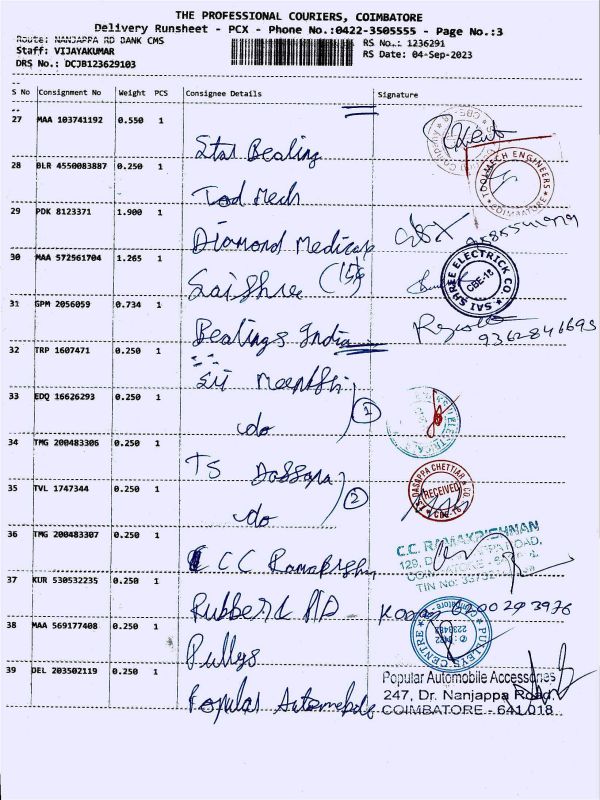 THE PROFESSIONAL COURIERS, COIMBATORE
Delivery Runsheet - PCX - Phone No.:0422-3505555 - Page No.:3
Route: NANJAPPA RD BANK CMS
RS No.: 1236291
Staff: VIJAYAKUMAR
RS Date: 04-Sep-2023
DRS No.: DCJB123629103
S No Consignment No Weight PCS Consignee Details Signature
27 MAA 103741192 0.550 1
Star Bearing
28 BLR 4550083887 0.250 1
TOOLMECH ENGINEERS COIMBATORE
Tool Mech
29 PDK 8123371 1.900 1
Diamond Medicap
30 MAA 572561704 1.265 1
Sai Shree (15)
SAI SHREE ELECTRICK CO. CBE-18
31 GPM 2056059 0.734 1
Bearings India
9362846693
32 TRP 1607471 0.250 1
Sri Meenakshi
33 EDQ 16626293 0.250 1
do 1
34 TMG 200483306 0.250 1
TS Dassapa
T.S. DASAPPA CHETTIAR & CO. RECEIVED CBE-18
35 TVL 1747344 0.250 1
do 2
36 TMG 200483307 0.250 1
C.C. RAMAKRISHNAN
COIMBATORE
TIN No:
C C Ramakrishn
37 KUR 530532235 0.250 1
Rubber & 6200293976
38 MAA 569177408 0.250 1
PULLEYS CENTRE
Pullys
39 DEL 203502119 0.250 1
Popular Automobile Accessories
247, Dr. Nanjappa Road,
Popular Automobile COIMBATORE - 641 018